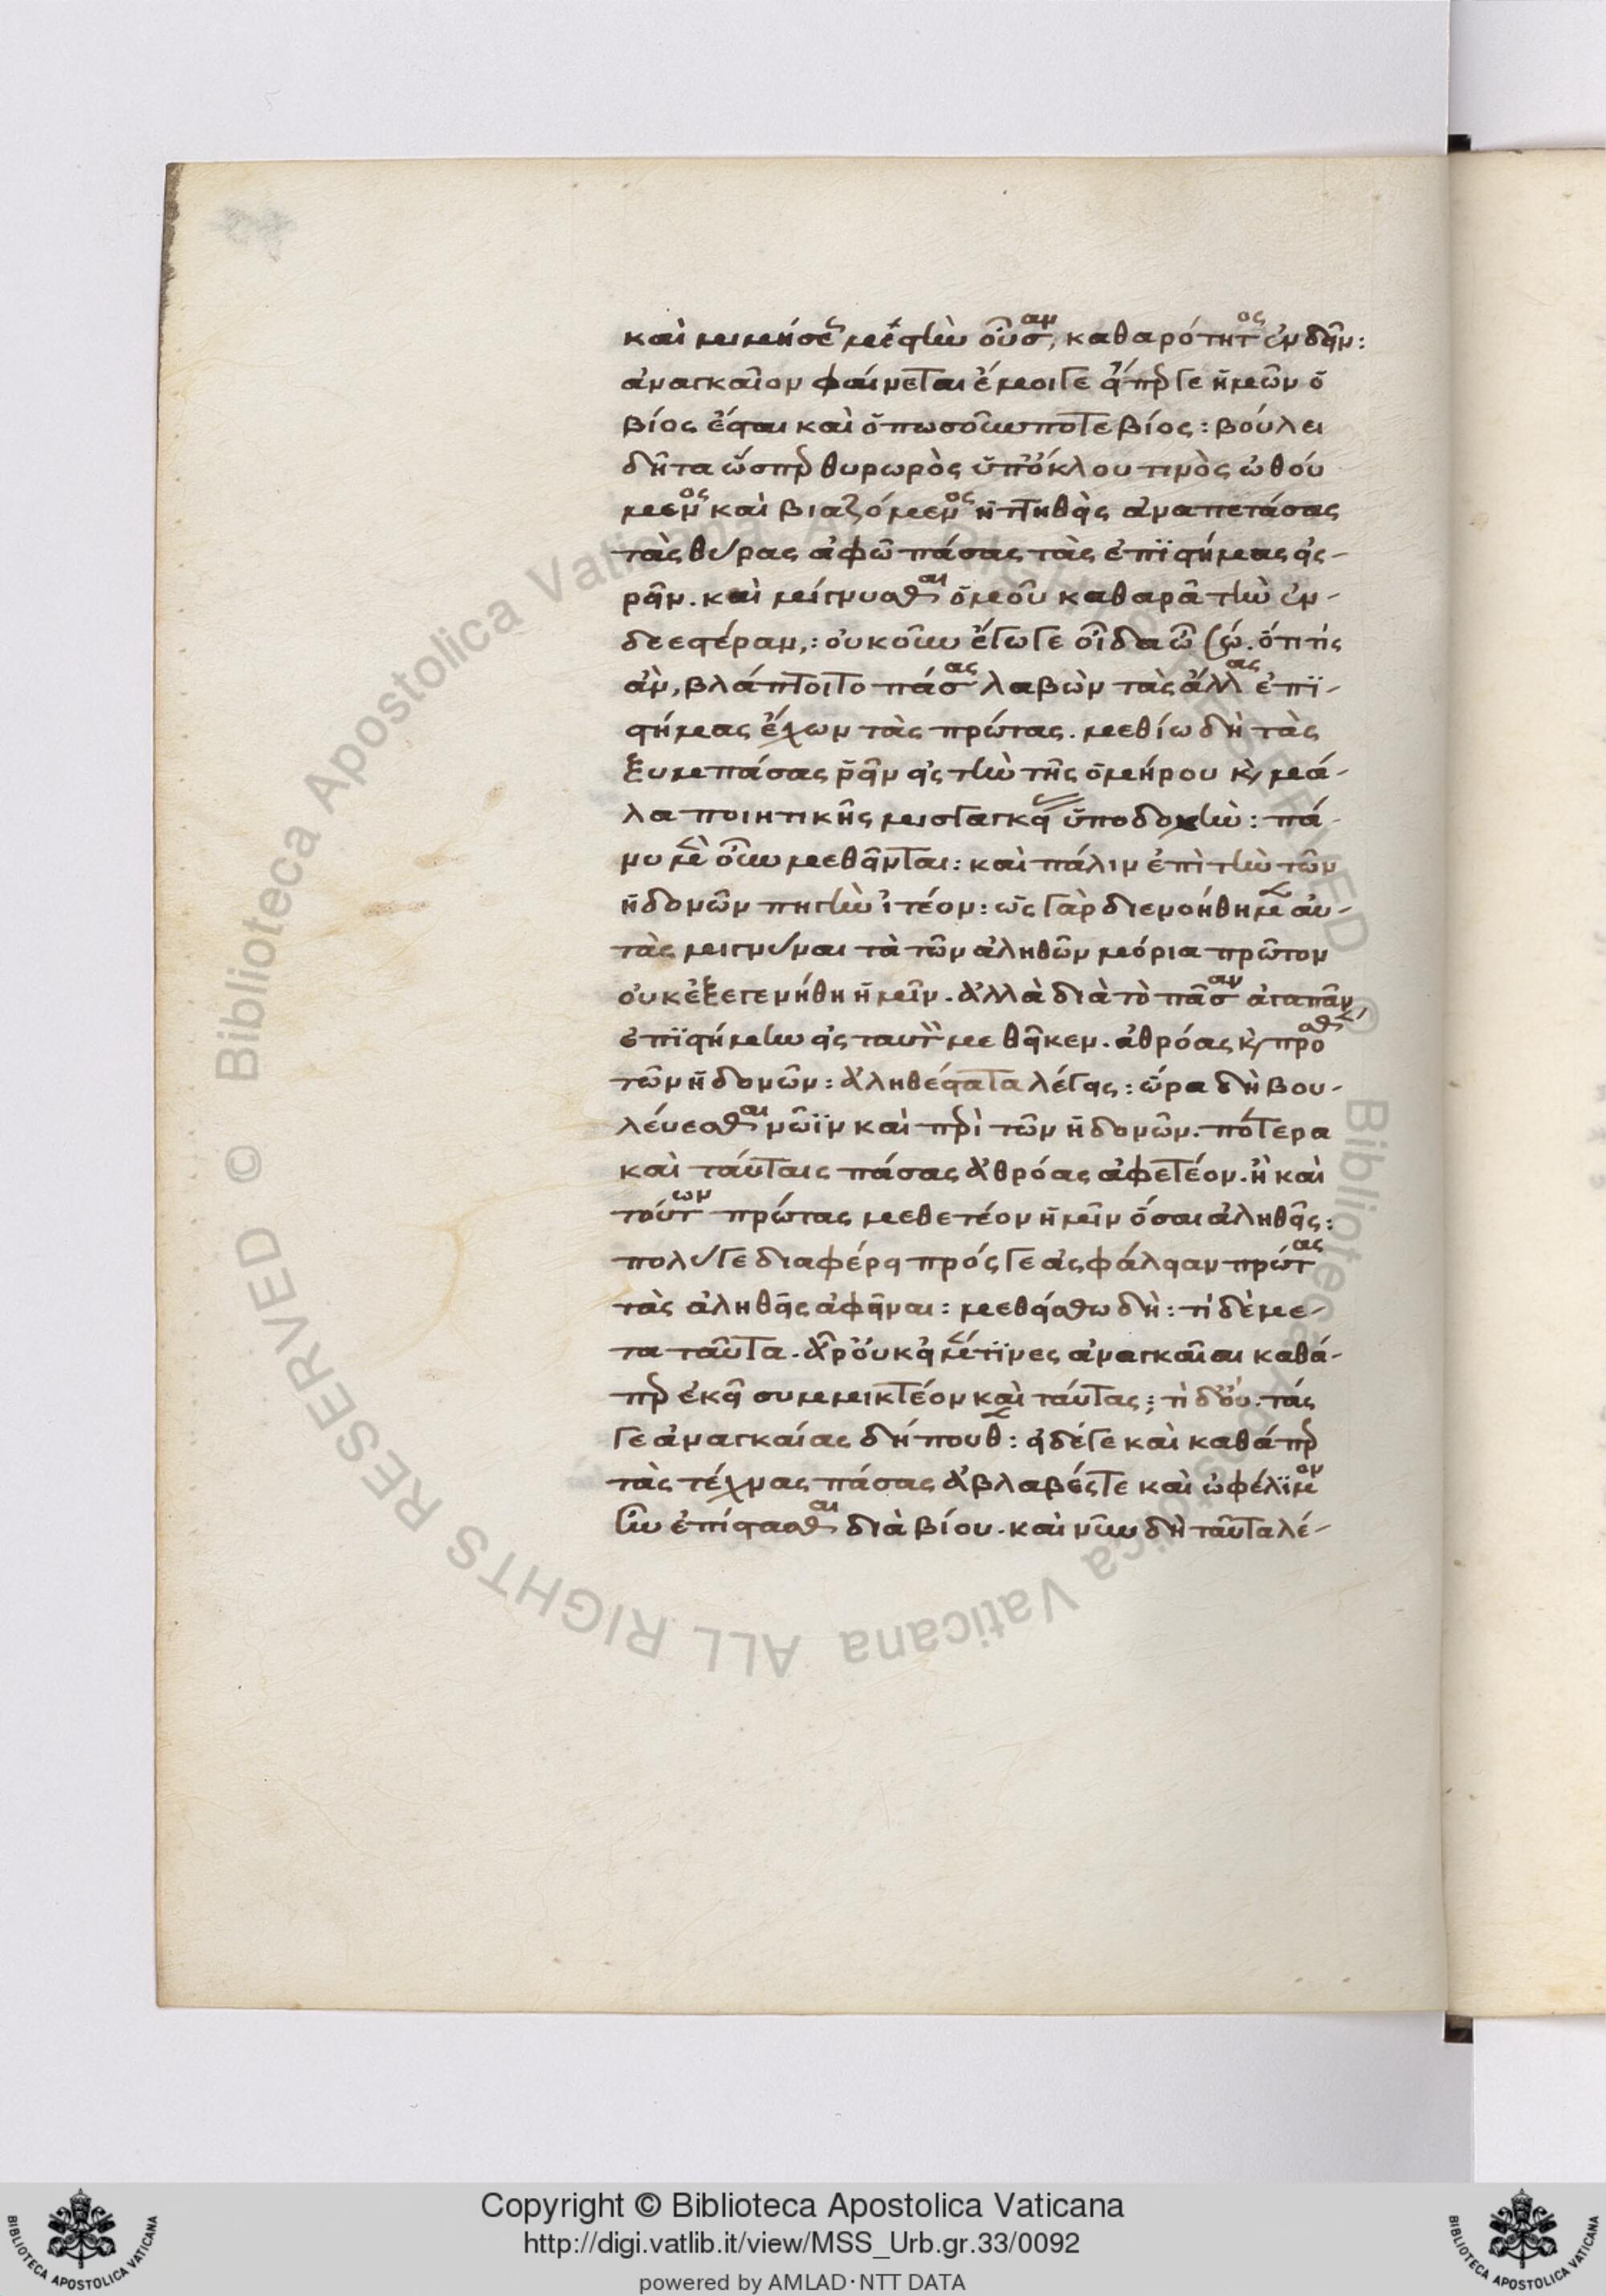 καὶ μιμήσεως μεστὴν οὖσαν, καθαρότητος ἐνδεῖν:
ἀναγκαῖον φαίνεται ἔμοιγε εἴπερ γε ἡμῶν ὁ
βίος ἔσται καὶ ὁπωσοῦνποτε βίος: βούλει
δῆτα ὥσπερ θυρωρὸς ὑπ' ὄκλου τινὸς ὠθού
μενος καὶ βιαζόμενος ἡττηθεὶς ἀναπετάσας
τὰς θύρας ἀφῶ πάσας τὰς ἐπιστήμας εἰς-
ρεῖν. καὶ μίγνυσθαι ὁμοῦ καθαρᾷ τὴν ἐν-
δεεστέραν,: οὐκοῦν ἔγωγε οἶδα ὦ σώ. ὅτι τίς
ἂν, βλάπτοιτο πάσας λαβὼν τὰς ἄλλας ἐπι-
στήμας ἔχων τὰς πρώτας. μεθίω δὴ τὰς
ξυμπάσας ῥεῖν εἰς τὴν τῆς ὁμήρου καὶ μά-
λα ποιητικῆς μισγαγκείας ὑποδοχὴν: πά-
νυ μὲν οὖν μεθεῖνται: καὶ πάλιν ἐπὶ τὴν τῶν
ἡδονῶν πηγὴν ἰτέον: ὡς γὰρ διενοήθημεν αὐ-
τὰς μιγνύναι τὰ τῶν ἀληθῶν μόρια πρῶτον
οὐκ ἐξεγενήθη ἡμῖν. ἀλλὰ διὰ τὸ πᾶσαν ἀγαπᾶν,
ἐπιστήμην εἰς ταυτὸν μεθεῖκεν. ἀθρόας καὶ πρόσθεν
τῶν ἡδονῶν: ἀληθέστατα λέγεις: ὥρα δὴ βου-
λεύεσθαι νῶϊν καὶ περὶ τῶν ἡδονῶν. πότερα
καὶ ταύταις πάσας ἀθρόας ἀφετέον. ἢ καὶ
τούτων πρώτας μεθετέον ἡμῖν ὅσαι ἀληθεῖς:
πολύ γε διαφέρει πρός γε ἀσφάλειαν πρώτας
τὰς ἀληθεῖς ἀφεῖναι: μεθείσθω δὴ: τί δὲ με-
τα ταῦτα. ἆρ' οὐκ εἰ μέν τινες ἀναγκαῖαι καθά-
περ ἐκεῖ συμμικτέον καὶ ταύτας; τί δ' οὔ. τάς
γε ἀναγκαίας δήπουθεν: εἰ δέ γε καὶ καθάπερ
τὰς τέχνας πάσας ἀβλαβές τε καὶ ὠφέλιμον
ἦν ἐπίστασθαι διὰ βίου. καὶ νῦν δὴ ταῦτα λέ-
© Biblioteca Apostolica Vaticana ALL RIGHTS RESERVED
© Biblioteca Apostolica Vaticana ALL RIGHTS RESERVED
BIBLIOTECA APOSTOLICA VATICANA
Copyright © Biblioteca Apostolica Vaticana
http://digi.vatlib.it/view/MSS_Urb.gr.33/0092
powered by AMLAD·NTT DATA
BIBLIOTECA APOSTOLICA VATICANA